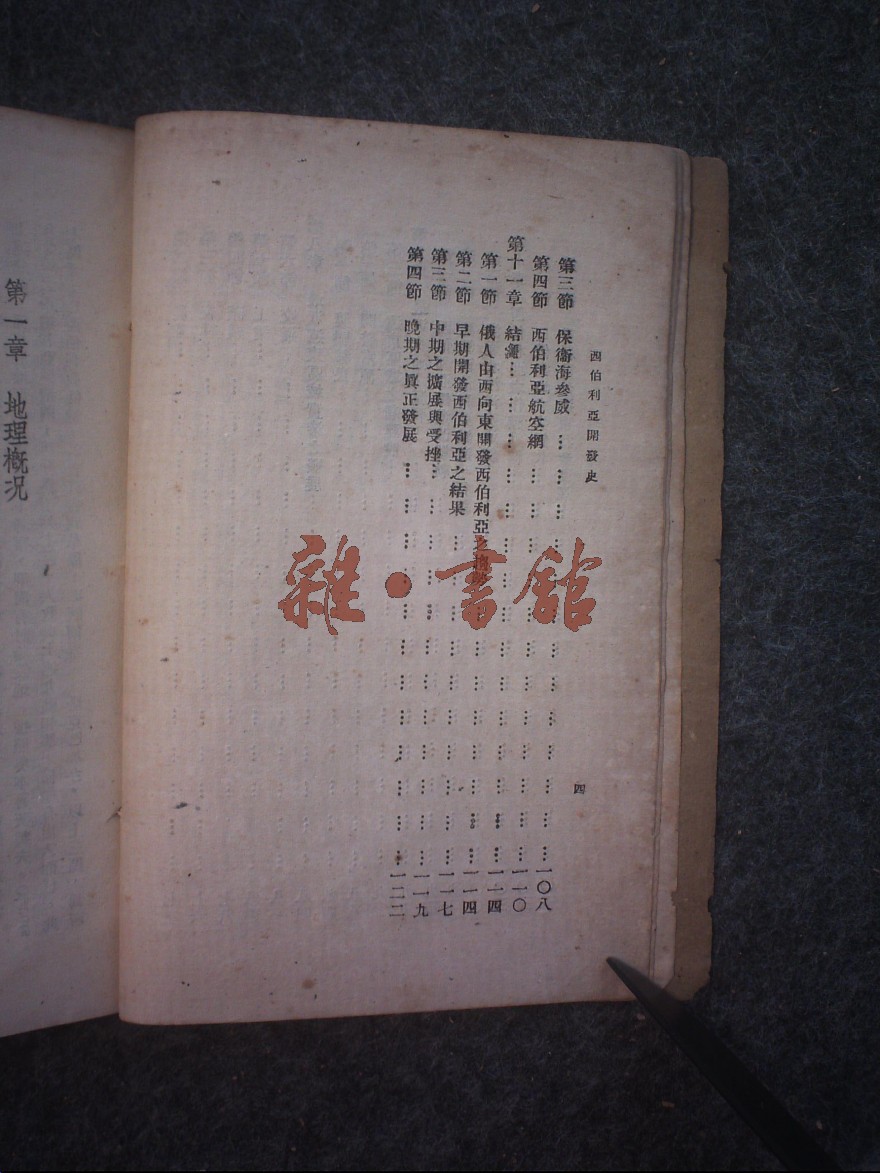 西伯利亞開發史
四
第三節 保衞海參威………一〇八
第四節 西伯利亞航空網………一一〇
第十一章 結論………一一四
第一節 俄人由西向東開發西伯利亞之………一一四
第二節 早期開發西伯利亞之結果………一一七
第三節 中期之擴展與受挫………一一九
第四節 晚期之眞正發展………一二二
第一章 地理概况
雜·書館